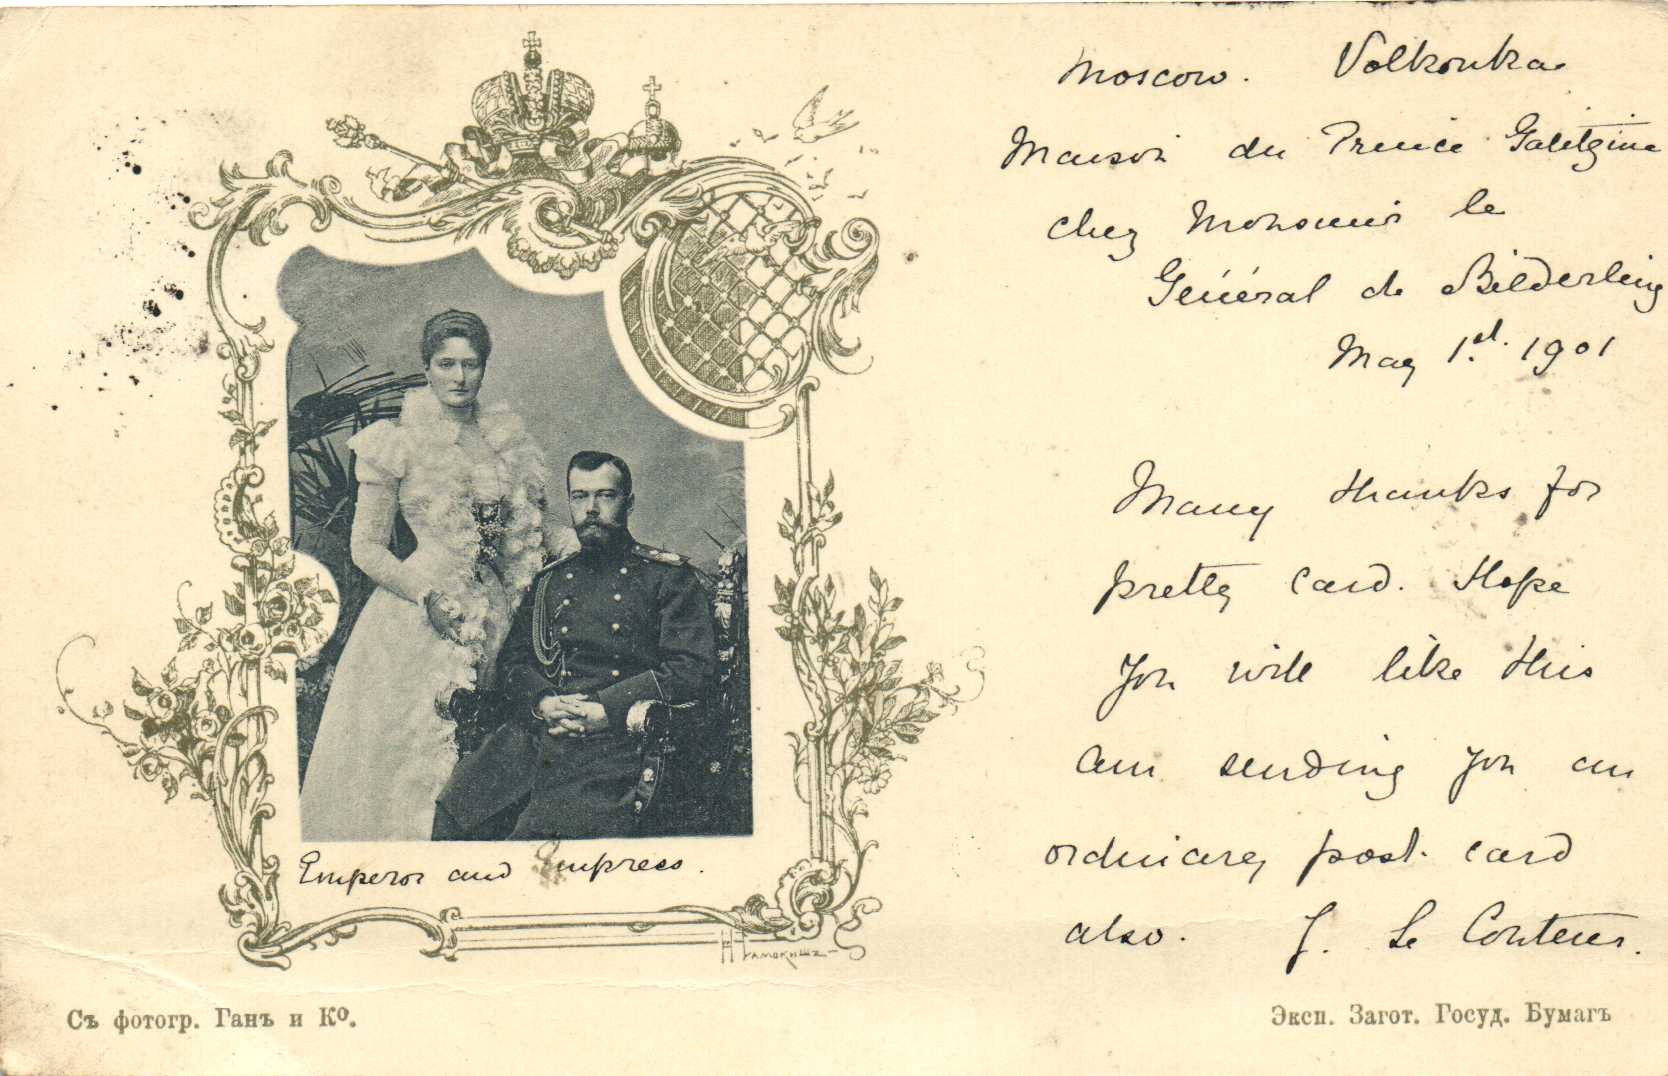 Moscow. Volkonka
Maison du Prince Galitzine
chez Monsieur le
Général de Bilderling
May 1st. 1901
Many thanks for
pretty card. Hope
you will like this
am sending you an
ordinary post. card
also. J. Le Couteur.
Emperor and Empress.
Съ фотогр. Ганъ и Ко.
Эксп. Загот. Госуд. Бумагъ